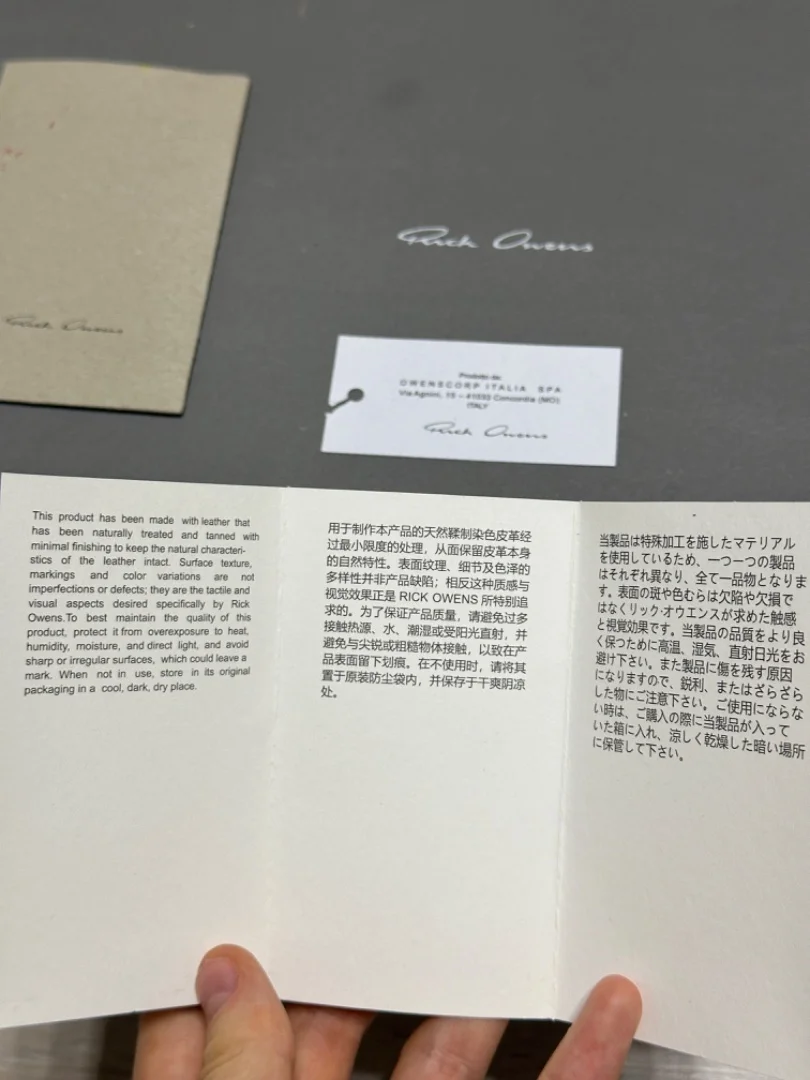 Rick Owens
Rick Owens
Prodotto da:
OWENSCORP ITALIA SPA
Via Agnini, 15 – 41033 Concordia (MO)
ITALY
Rick Owens
This product has been made with leather that
has been naturally treated and tanned with
minimal finishing to keep the natural characteri-
stics of the leather intact. Surface texture,
markings and color variations are not
imperfections or defects; they are the tactile and
visual aspects desired specifically by Rick
Owens.To best maintain the quality of this
product, protect it from overexposure to heat,
humidity, moisture, and direct light, and avoid
sharp or irregular surfaces, which could leave a
mark. When not in use, store in its original
packaging in a cool, dark, dry place.
用于制作本产品的天然鞣制染色皮革经
过最小限度的处理，从面保留皮革本身
的自然特性。表面纹理、细节及色泽的
多样性并非产品缺陷；相反这种质感与
视觉效果正是 RICK OWENS 所特别追
求的。为了保证产品质量，请避免过多
接触热源、水、潮湿或受阳光直射，并
避免与尖锐或粗糙物体接触，以致在产
品表面留下划痕。在不使用时，请将其
置于原装防尘袋内，并保存于干爽阴凉
处。
当製品は特殊加工を施したマテリアル
を使用しているため、一つ一つの製品
はそれぞれ異なり、全て一品物となりま
す。表面の斑や色むらは欠陥や欠損で
はなくリック·オウエンスが求めた触感
と視覚効果です。当製品の品質をより良
く保つために高温、湿気、直射日光をお
避け下さい。また製品に傷を残す原因
になりますので、鋭利、またはざらざら
した物にご注意下さい。ご使用にならな
い時は、ご購入の際に当製品が入って
いた箱に入れ、涼しく乾燥した暗い場所
に保管して下さい。